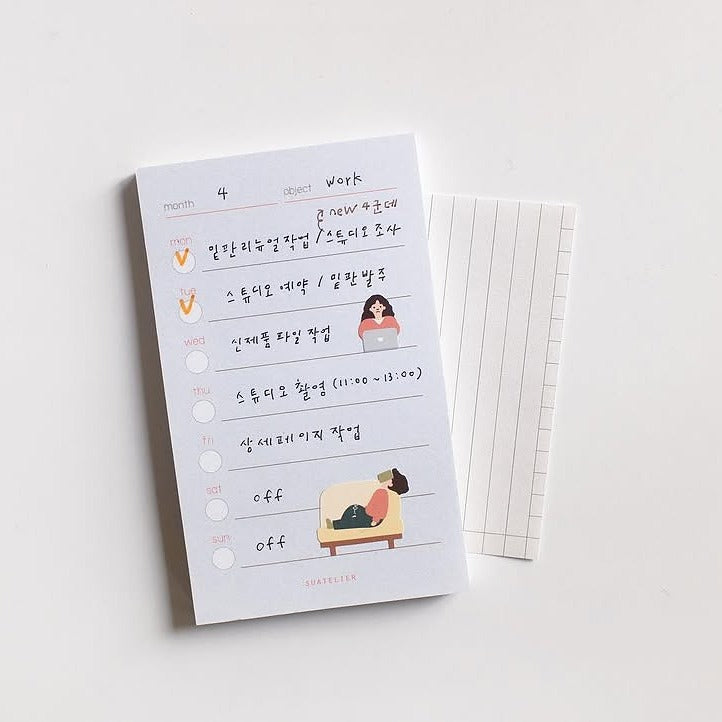 month 4 object work
new 4군데
mon 밑판리뉴얼작업 / 스튜디오조사
tue 스튜디오예약 / 밑판발주
wed 신제품파일작업
thu 스튜디오촬영 (11:00~13:00)
fri 상세페이지작업
sat off
sun off
SUATELIER